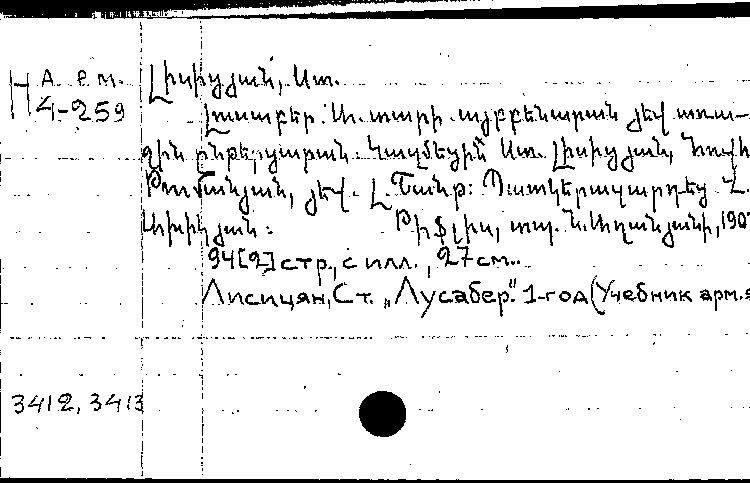 Н Арм. Լիսիցյան, Ստ.
4-259
Լուսաբեր: Ա. տարի. այբբենարան յեվ առա-
ջին ընթերցարան. Կազմեցին Ստ. Լիսիցյան, Հովհ
Թումանյան, յեվ. Լ. Շանթ: Պատկերազարդեց Հ.
Թիֆլիս, տպ. Ն. Աղանյանի, 190
94[2] стр., с илл., 27 см..
Лисицян, Ст. „Лусабер". 1-год (Учебник арм.
3412, 3413